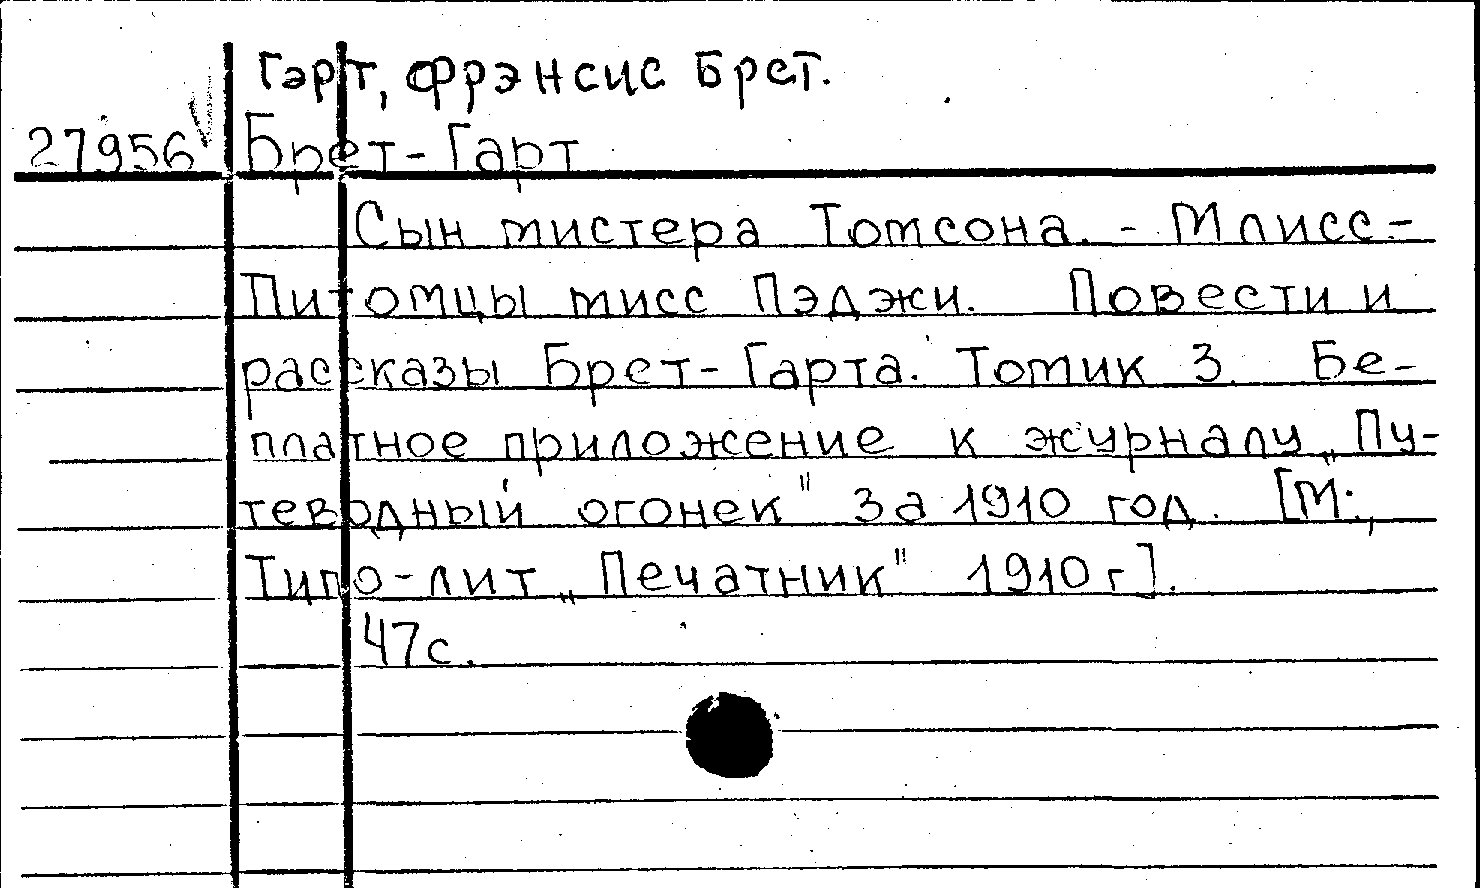 Гарт, Фрэнсис Брет.
27956 Брет-Гарт
Сын мистера Томсона. - Млисс.-
Питомцы мисс Пэджи. Повести и
рассказы Брет-Гарта. Томик 3. Бе-
платное приложение к журналу „Пу-
теводный огонек" за 1910 год. [М.,
Типо-лит „Печатник" 1910 г].
47с.